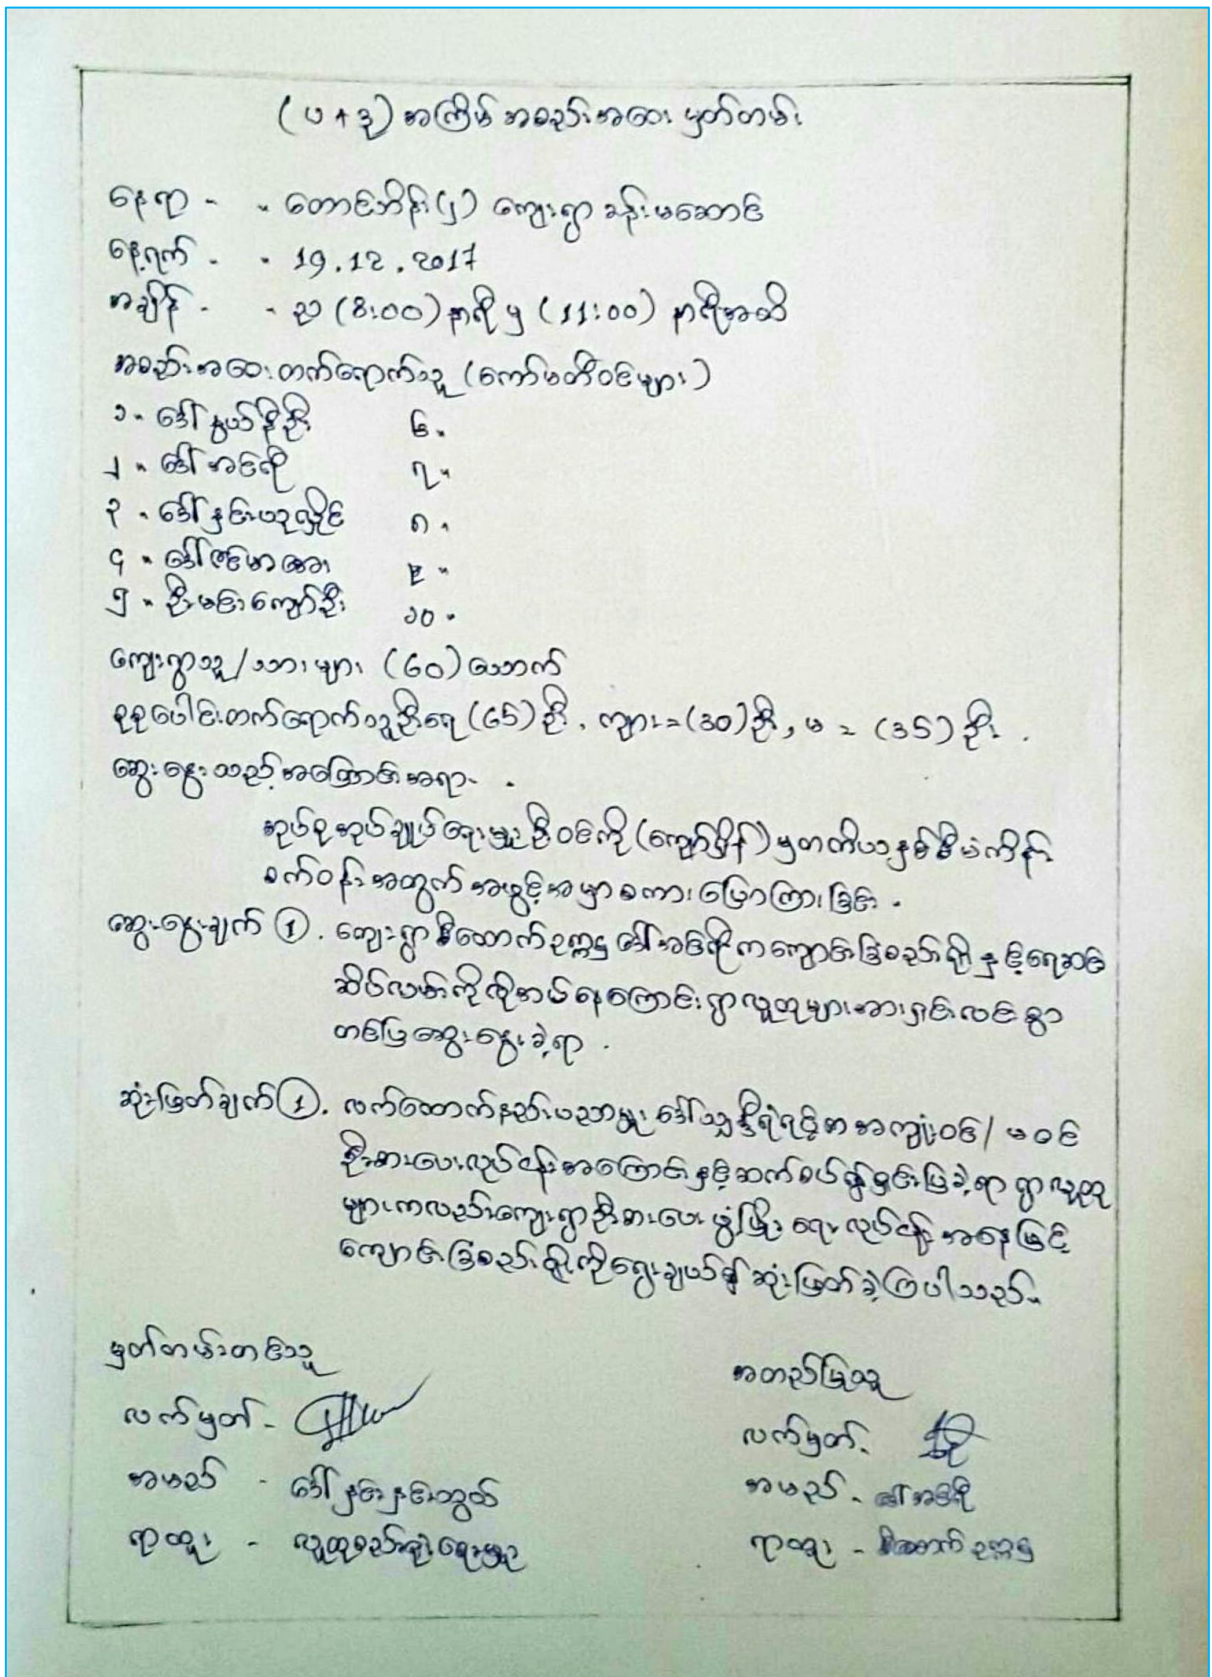 (ပ + ဒု) အကြိမ် အစည်းအဝေး မှတ်တမ်း
နေရာ - - တောင်ဘိန်း(၂) ကျေးရွာ ခန်းမဆောင်
နေ့ရက် - - 19.12.2017
အချိန် - - ည (8:00) နာရီ မှ (11:00) နာရီအထိ
အစည်းအဝေးတက်ရောက်သူ (ကော်မတီဝင်များ)
၁။ ဒေါ်နွယ်နီဦး ၆။
၂။ ဒေါ်အင်ရီ ၇။
၃။ ဒေါ်နှင်းယုလှိုင် ၈။
၄။ ဒေါ်ဇင်မာအေး ၉။
၅။ ဦးမင်းကျော်ဦး ၁၀။
ကျေးရွာသူ/သားများ (60) ယောက်
စုစုပေါင်းတက်ရောက်သူဦးရေ (65) ဦး, ကျား = (30) ဦး, မ = (35) ဦး.
ဆွေးနွေးသည့်အကြောင်းအရာ- -
အုပ်စုအုပ်ချုပ်ရေးမှူး ဦးဝင်းကို (ကျော်ရှိန်) မှတတိယနှစ်စီမံကိန်း
စက်ဝန်းအတွက် အဖွင့်အမှာစကားပြောကြားခြင်း -
ဆွေးနွေးချက် ①. ကျေးရွာစီထောက်ဥက္ကဋ္ဌ ဒေါ်အင်ရီက ကျောင်းခြံစည်းရိုးနှင့်ရေဆင်း
ဆိပ်လမ်းကိုလိုအပ်နေကြောင်းရွာလူထုများအားရှင်းလင်းစွာ
တင်ပြဆွေးနွေးခဲ့ရာ -
ဆုံးဖြတ်ချက် ①. လက်ထောက်နည်းပညာမှူး ဒေါ်သန္တီရံရင့်က အကျုံးဝင်/မဝင်
ဦးစားပေးလုပ်ငန်းအကြောင်းနှင့်ဆက်စပ်၍ရှင်းပြခဲ့ရာ ရွာလူထု
များကလည်းကျေးရွာဦးစားပေး ဖွံ့ဖြိုးရေးလုပ်ငန်း အနေဖြင့်
ကျောင်းခြံစည်းရိုးကိုရွေးချယ်၍ ဆုံးဖြတ်ခဲ့ကြပါသည်။
မှတ်တမ်းတင်သူ
အတည်ပြုသူ
လက်မှတ် -
လက်မှတ် -
အမည် - ဒေါ်နှင်းနှင်းထွဋ်
အမည် - ဒေါ်အင်ရီ
ရာထူး - လူထုစည်းရုံးရေးမှူး
ရာထူး - စီထောက်ဥက္ကဋ္ဌ